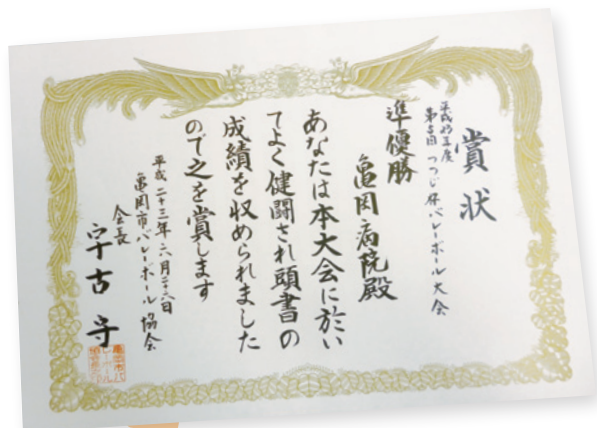 賞状
平成二十三年度
つつじ杯バレーボール大会
準優勝
亀岡病院殿
あなたは本大会に於い
てよく健闘され頭書の
成績を収められました
ので之を賞します
平成二十三年六月二十六日
亀岡市バレーボール協会
会長
宇古守